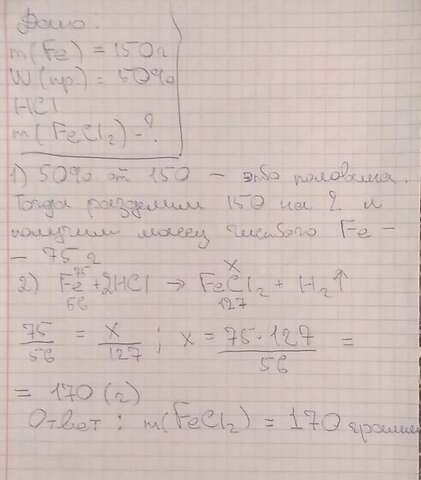 Дано.
m(Fe) = 150г
W(пр.) = 50%
HCl
m(FeCl₂) - ?
1) 50% от 150 — это половина.
Тогда разделим 150 на 2 и
получим массу чистого Fe -
- 75 г
x
2) Fe⁷⁵ + 2HCl → FeCl₂ + H₂↑
56 127
75/56 = x/127 ; x = 75·127/56 =
= 170 (г)
Ответ: m(FeCl₂) = 170 грамм